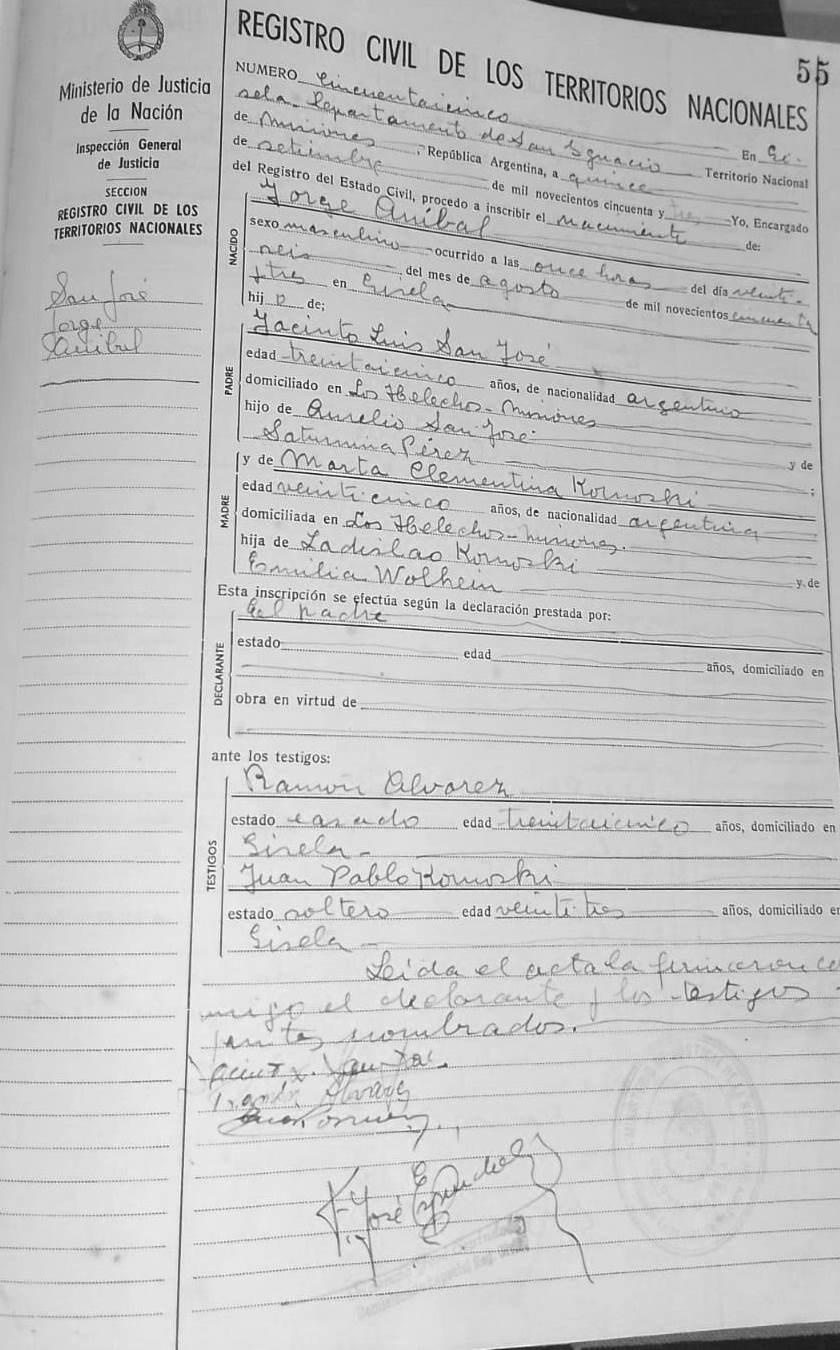 55
REGISTRO CIVIL DE LOS TERRITORIOS NACIONALES
Ministerio de Justicia
de la Nación
Inspección General
de Justicia
SECCION
REGISTRO CIVIL DE LOS
TERRITORIOS NACIONALES
San José
Jorge
Aníbal
NUMERO cincuentaicinco En Gi-
sela. Departamento de San Ignacio Territorio Nacional
de Misiones, República Argentina, a quince
de setiembre de mil novecientos cincuenta y tres Yo, Encargado
del Registro del Estado Civil, procedo a inscribir el nacimiento de:
NACIDO
Jorge Aníbal
sexo masculino ocurrido a las once horas del día veinti-
seis, del mes de agosto de mil novecientos cincuenta
y tres en Gisela
hijo de;
PADRE
Jacinto Luis San José
edad treintaicinco años, de nacionalidad argentino
domiciliado en Los Helechos - Misiones
hijo de Aurelio San José y de
Saturnina Pérez ;
MADRE
y de Marta Clementina Kornoski
edad veinticinco años, de nacionalidad argentina
domiciliada en Los Helechos - Misiones.
hija de Ladislao Kornoski y de
Emilia Wolhein
Esta inscripción se efectúa según la declaración prestada por:
DECLARANTE
el padre
estado edad años, domiciliado en
obra en virtud de
ante los testigos:
TESTIGOS
Ramon Alvarez
estado casado edad treintaicinco años, domiciliado en
Gisela -
Juan Pablo Kornoski
estado soltero edad veintitres años, domiciliado en
Gisela -
Leida el acta la firmaron co
migo el declarante y los testigos
antes nombrados.
Ramón Alvarez
José